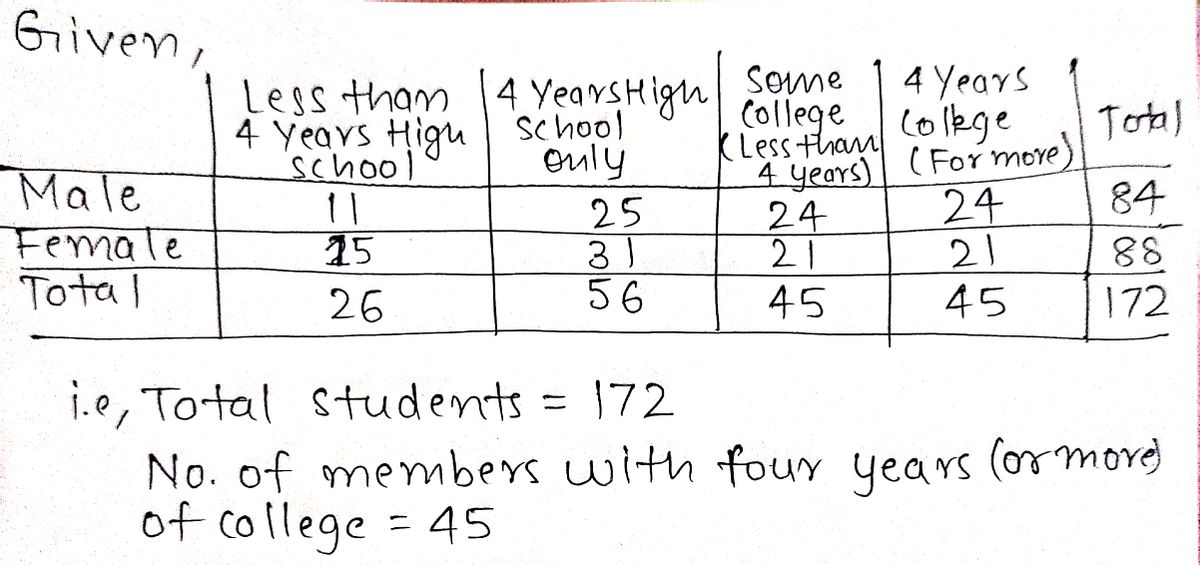 Given,
Less than 4 Years High Some 4 Years
4 Years High School College College Total
school only (Less than (For more)
4 years)
Male 11 25 24 24 84
Female 15 31 21 21 88
Total 26 56 45 45 172
i.e, Total students = 172
No. of members with four years (or more)
of college = 45